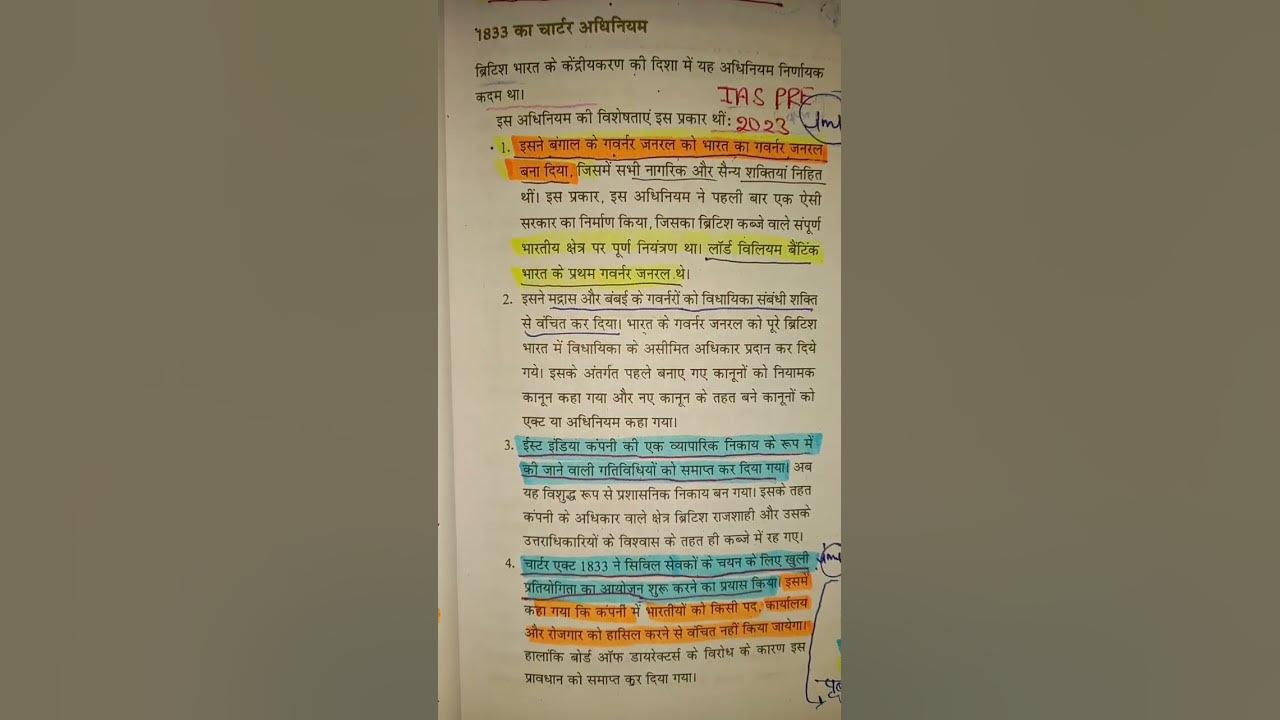 1833 का चार्टर अधिनियम
ब्रिटिश भारत के केंद्रीयकरण की दिशा में यह अधिनियम निर्णायक
कदम था।
IAS PRE
इस अधिनियम की विशेषताएं इस प्रकार थीं:
2023
1. इसने बंगाल के गवर्नर जनरल को भारत का गवर्नर जनरल
बना दिया, जिसमें सभी नागरिक और सैन्य शक्तियां निहित
थीं। इस प्रकार, इस अधिनियम ने पहली बार एक ऐसी
सरकार का निर्माण किया, जिसका ब्रिटिश कब्जे वाले संपूर्ण
भारतीय क्षेत्र पर पूर्ण नियंत्रण था। लॉर्ड विलियम बैंटिक
भारत के प्रथम गवर्नर जनरल थे।
2. इसने मद्रास और बंबई के गवर्नरों को विधायिका संबंधी शक्ति
से वंचित कर दिया। भारत के गवर्नर जनरल को पूरे ब्रिटिश
भारत में विधायिका के असीमित अधिकार प्रदान कर दिये
गये। इसके अंतर्गत पहले बनाए गए कानूनों को नियामक
कानून कहा गया और नए कानून के तहत बने कानूनों को
एक्ट या अधिनियम कहा गया।
3. ईस्ट इंडिया कंपनी की एक व्यापारिक निकाय के रूप में
की जाने वाली गतिविधियों को समाप्त कर दिया गया। अब
यह विशुद्ध रूप से प्रशासनिक निकाय बन गया। इसके तहत
कंपनी के अधिकार वाले क्षेत्र ब्रिटिश राजशाही और उसके
उत्तराधिकारियों के विश्वास के तहत ही कब्जे में रह गए।
4. चार्टर एक्ट 1833 ने सिविल सेवकों के चयन के लिए खुली
प्रतियोगिता का आयोजन शुरू करने का प्रयास किया। इसमें
कहा गया कि कंपनी में भारतीयों को किसी पद, कार्यालय
और रोजगार को हासिल करने से वंचित नहीं किया जायेगा।
हालांकि बोर्ड ऑफ डायरेक्टर्स के विरोध के कारण इस
प्रावधान को समाप्त कर दिया गया।